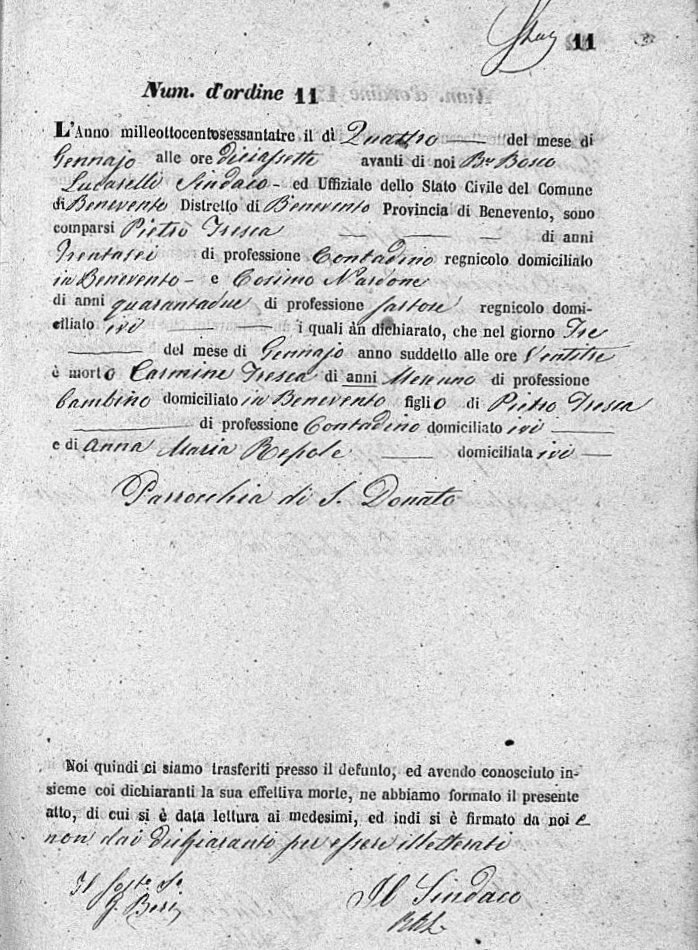 11
Num. d'ordine 11
L'Anno milleottocentosessantatre il dì Quattro del mese di
Gennajo alle ore diciassette avanti di noi Bne Bosco
Lucarelli Sindaco - ed Uffiziale dello Stato Civile del Comune
di Benevento Distretto di Benevento Provincia di Benevento, sono
comparsi Pietro Tresca di anni
Trentasei di professione Contadino regnicolo domiciliato
in Benevento - e Cosimo Nardone
di anni quarantadue di professione sartore regnicolo domi-
ciliato ivi i quali àn dichiarato, che nel giorno Tre
del mese di Gennajo anno suddetto alle ore Ventitre
è morto Carmine Tresca di anni Mese uno di professione
bambino domiciliato in Benevento figlio di Pietro Tresca
di professione Contadino domiciliato ivi
e di Anna Maria Repole domiciliata ivi
Parrocchia di S. Donato
Noi quindi ci siamo trasferiti presso il defunto, ed avendo conosciuto in-
sieme coi dichiaranti la sua effettiva morte, ne abbiamo formato il presente
atto, di cui si è data lettura ai medesimi, ed indi si è firmato da noi e
non dai dichiaranti per essere illetterati
Il Sindaco